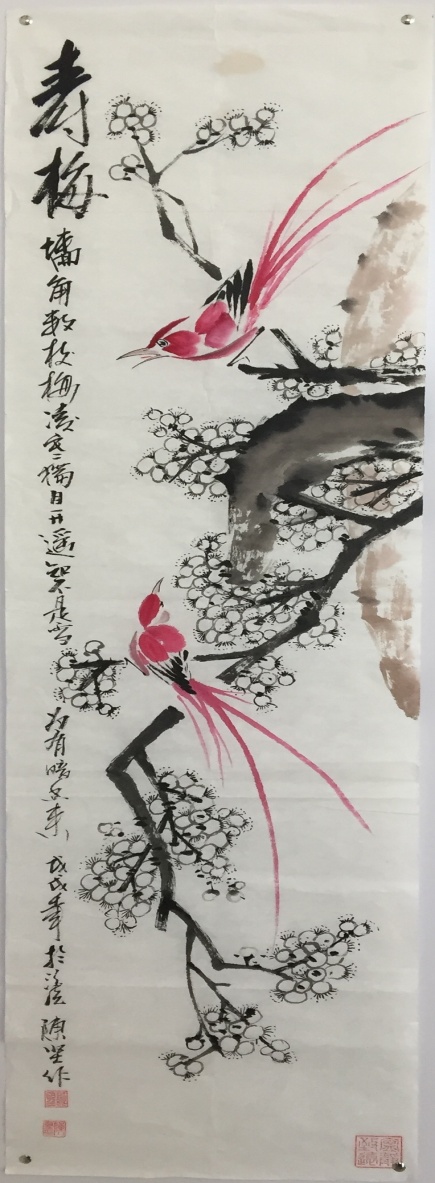 寿梅
墙角数枝梅凌寒独自开遥知不是雪 为有暗香来 戊戌年於 陳坚作